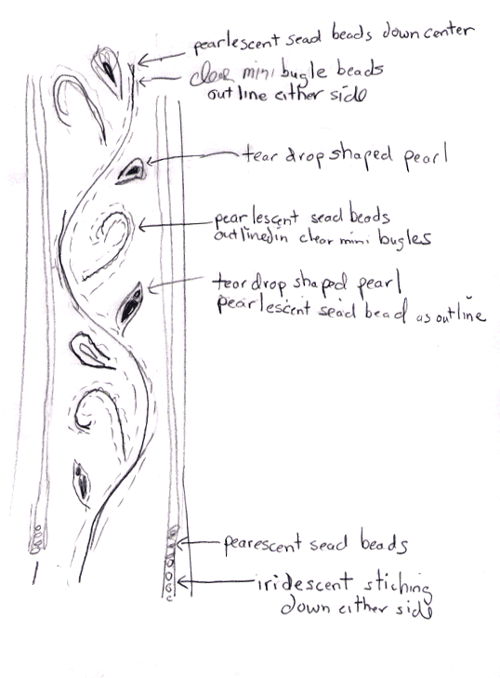 pearlescent sead beads down center
clear mini bugle beads
outline either side
tear drop shaped pearl
pearlescent sead beads
outlined in clear mini bugles
tear drop shaped pearl
pearlescent sead bead as outline
pearescent sead beads
iridescent stiching
down either side